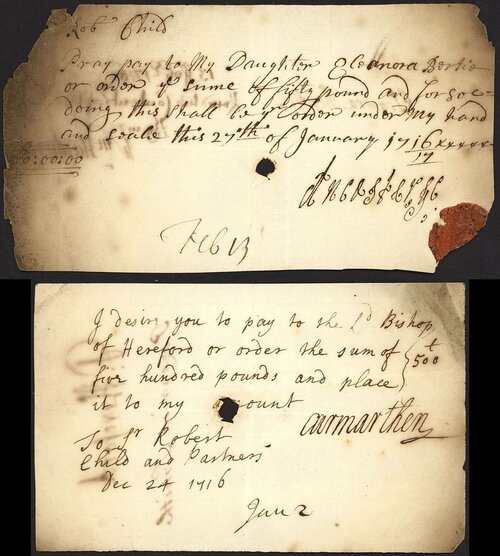 Robt Child
Pray pay to My Daughter Eleonora Bertie
or order ye sume of fifty pound and for soe
doing this shall be yr order under My hand
and seale this 27th of January 1716/17 xxxxxx
:00:00
Feb 13
I desire you to pay to the Ld Bishop
of Hereford or order the sum of
five hundred pounds and place
500
it to my count
carmarthen
To Sr Robert
Child and Partners
Dec 24 1716
Jan 2